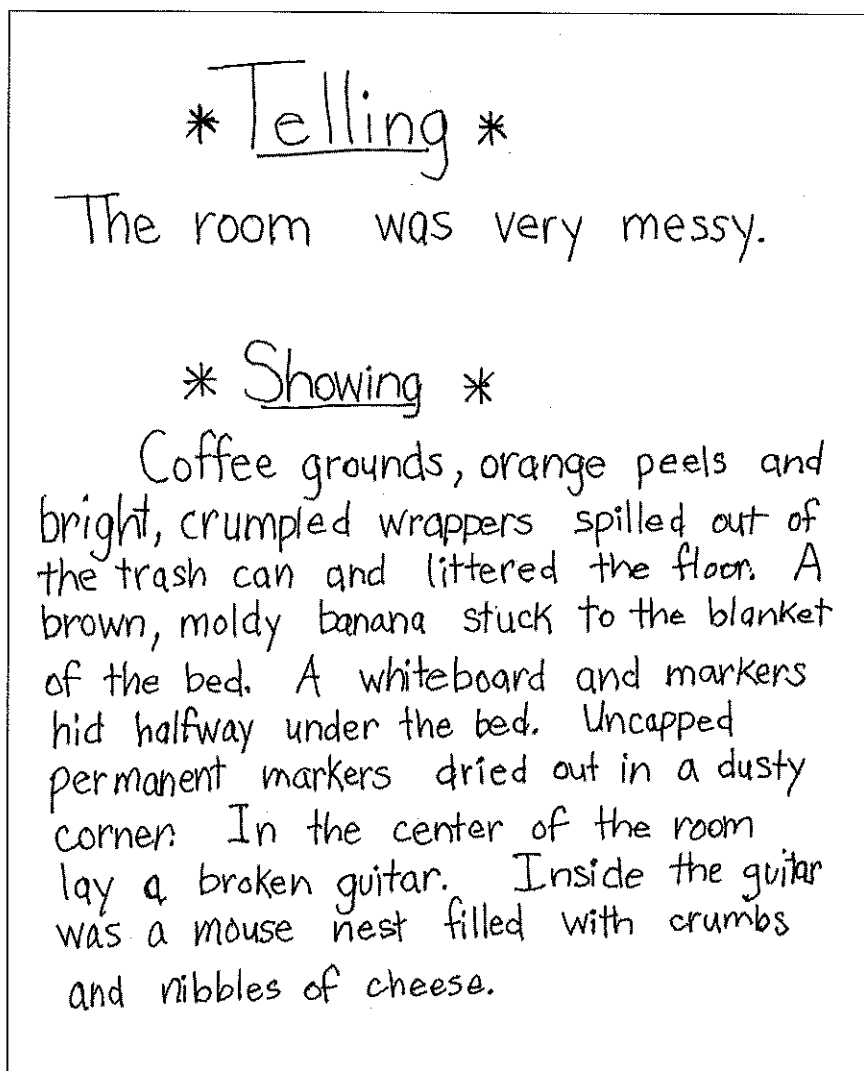 * Telling *
The room was very messy.
* Showing *
Coffee grounds, orange peels and
bright, crumpled wrappers spilled out of
the trash can and littered the floor. A
brown, moldy banana stuck to the blanket
of the bed. A whiteboard and markers
hid halfway under the bed. Uncapped
permanent markers dried out in a dusty
corner. In the center of the room
lay a broken guitar. Inside the guitar
was a mouse nest filled with crumbs
and nibbles of cheese.